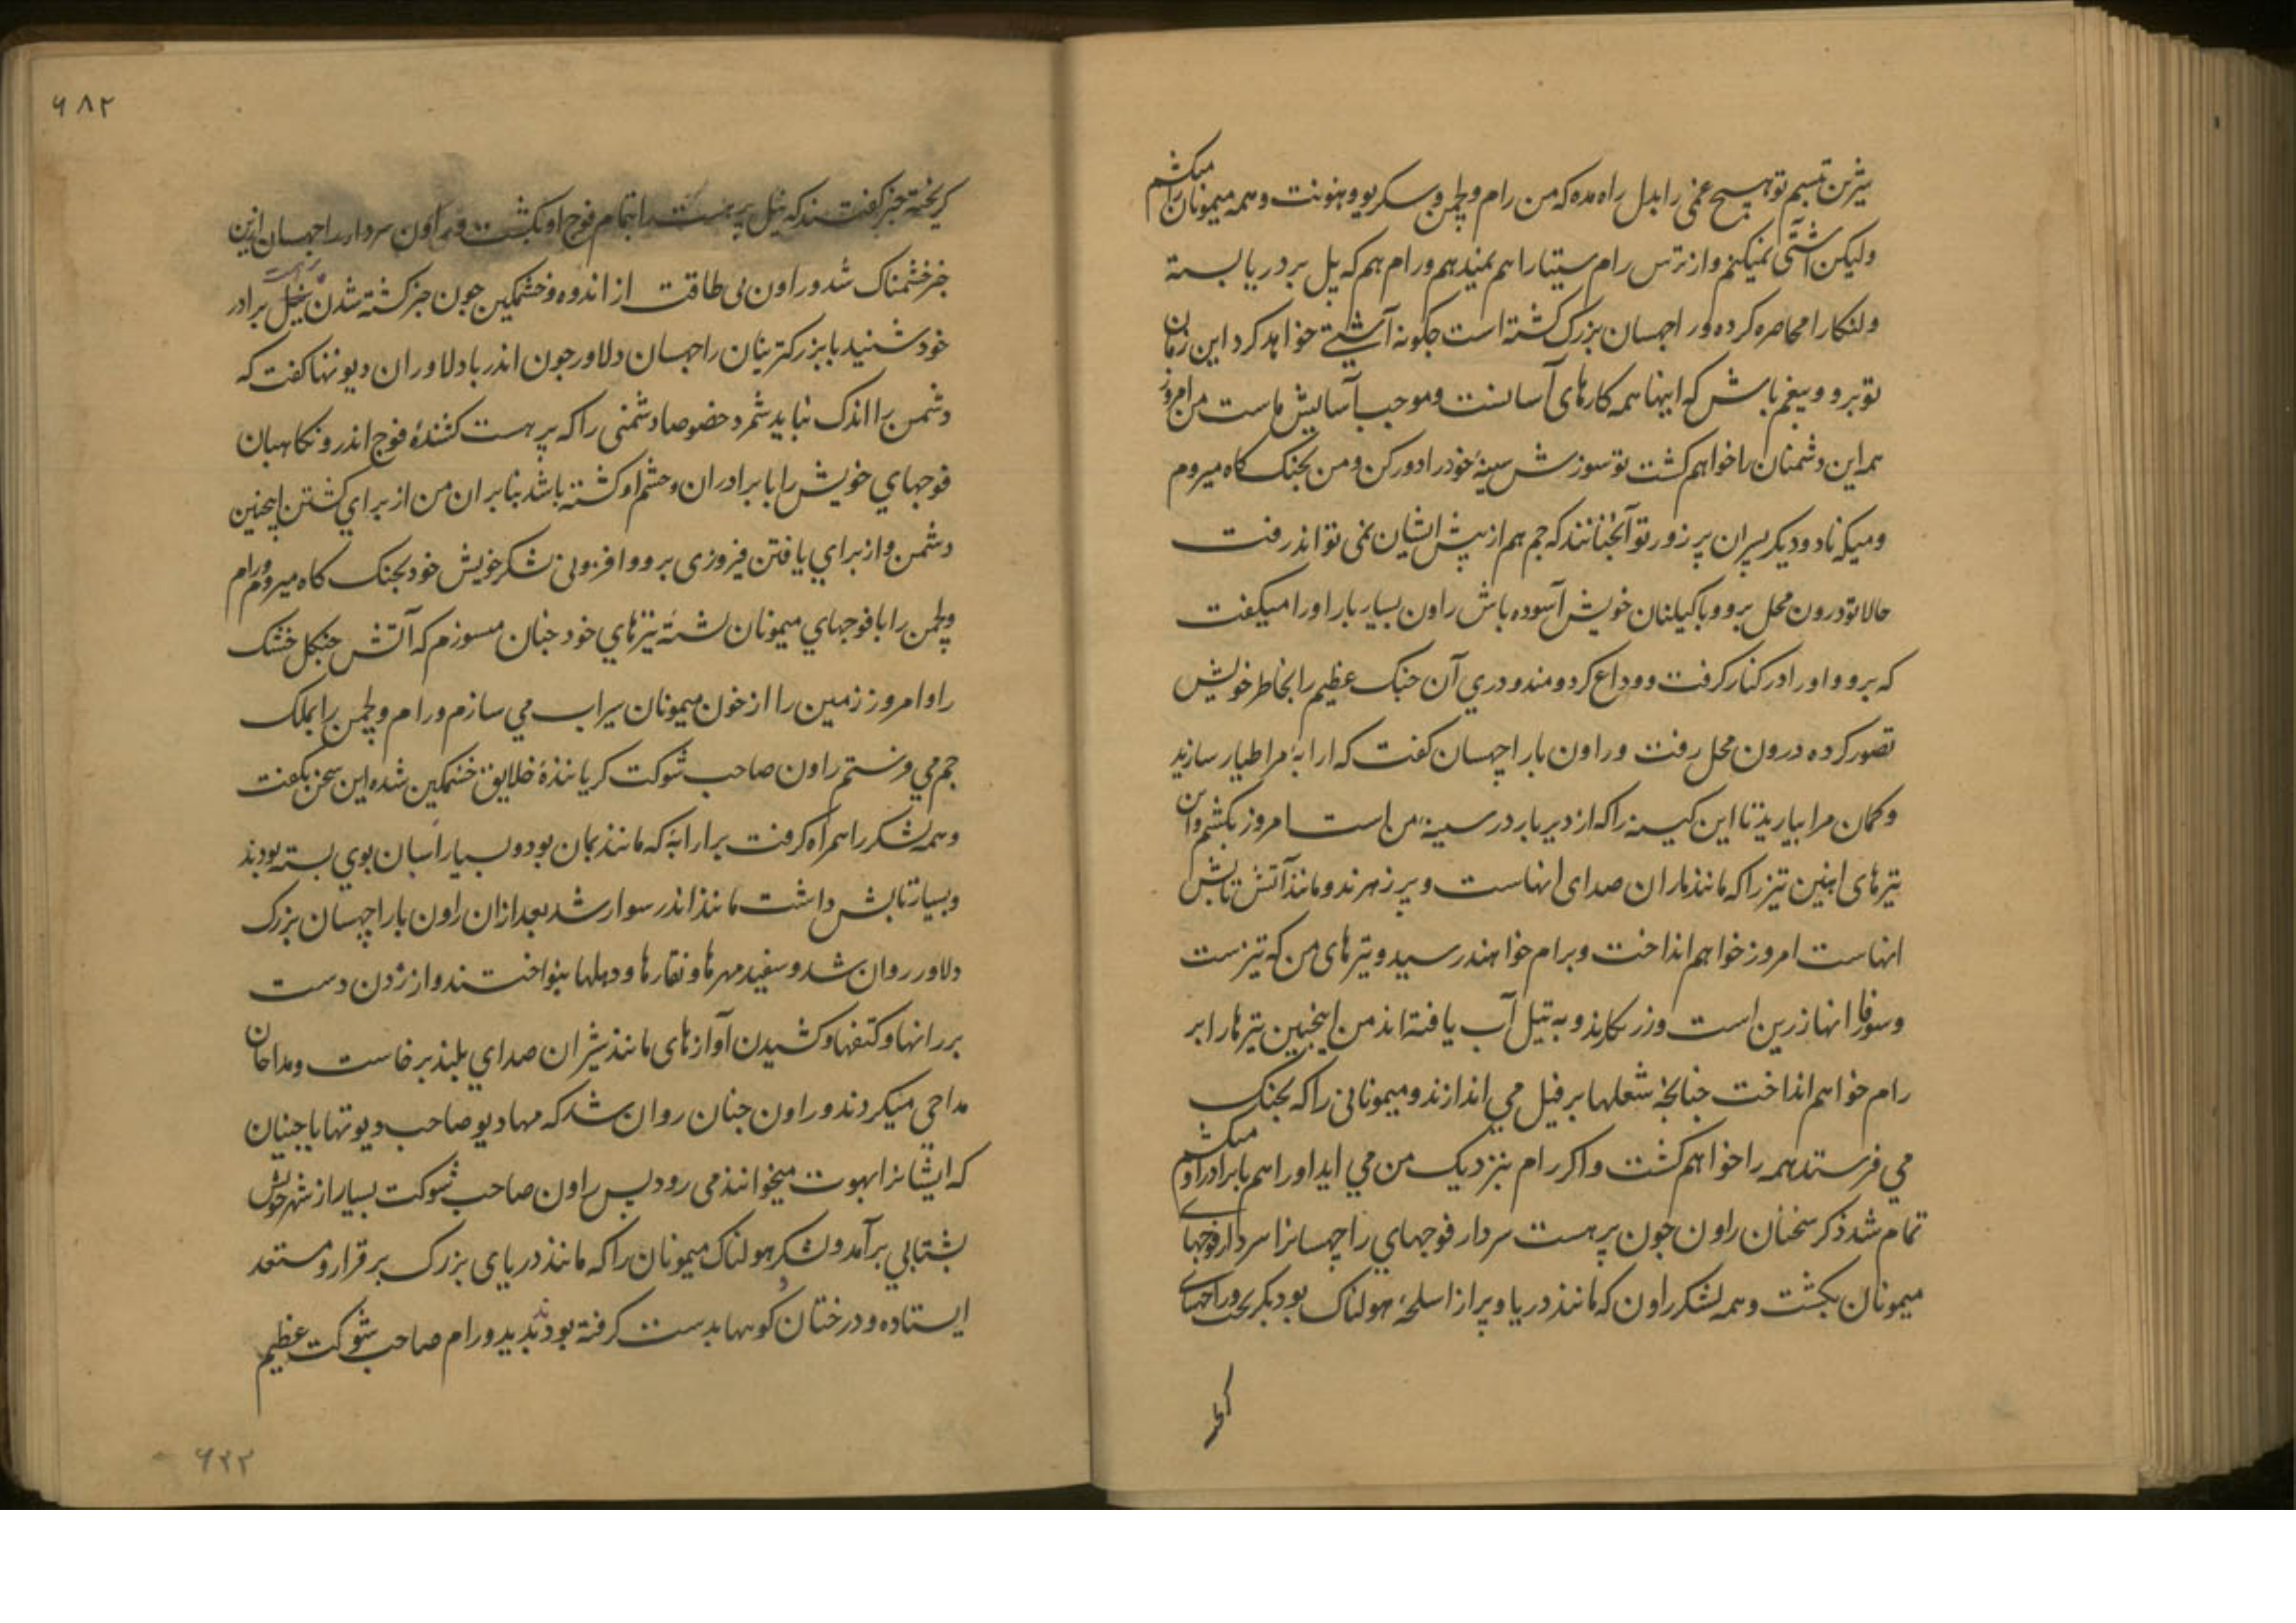 شیرین تبسم تو هیچ غمی را بدل راه مده که من رام و لچمن و سکریو و هنونت و همه میمونان را میکشم
ولیکن آشتی نمیکنم و از ترس رام سیتا را هم نمیدهم و رام هم که پل بر دریا بسته
و لنکا را محاصره کرده و راجهسان بزرک کشته است جکونه آشتی خواهد کرد این زمان
تو برو و بیغم باش که اینها همه کارهای آسانست و موجب آسایش ماست من امروز
همه این دشمنان را خواهم کشت تو سوزش سینهٔ خود را دور کن و من بجنک کاه میروم
و میکه ناد و دیکر پسران پر زور تو آنجنانند که جم هم از پیش ایشان نمی تواند رفت
حالا تو درون محل برو و با کیلنان خویش آسوده باش راون بسیار بار او را میکفت
که برو و او را در کنار کرفت و وداع کرد و مندودری آن جنک عظیم را بخاطر خویش
تصور کرده درون محل رفت و راون با راجهسان کفت که ارابهٔ مرا طیار سازید
و کمان مرا بیارید تا این کینه را که از دیر باز در سینهٔ من است امروز بکشم و آن
تیرهای اهنین تیز را که مانند ماران صدای انهاست و پر زهرند و مانند آتش تابش
انهاست امروز خواهم انداخت و برام خواهند رسید و تیرهای من که تیزست
و سوفار انها زرین است و زر نکارند و به تیل آب یافته اند من اینجنین تیرها را بر
رام خواهم انداخت جنانجه شعلها بر فیل می اندازند و میمونانی را که بجنک
می فرستد همه را خواهم کشت و اکر رام بنزدیک من می اید او را هم با برادر او میکشم
تمام شد ذکر سخنان راون جون پرهست سردار فوجهای راجهسانرا سردار فوجهای
میمونان بکشت و همه لشکر راون که مانند دریا و پر از اسلحهٔ هولناک بود بکریخت و راجهسان
کریخته خبر کفتند که نیل پرهست را با تمام فوج او بکشت و راون سردار راجهسان ازین
خبر خشمناک شد و راون بی طاقت از اندوه و خشمکین جون خبر کشته شدن پرهست برادر
خود شنید با بزرکترینان راجهسان دلاور جون اندر با دلاوران دیوتها کفت که
دشمن را اندک نباید شمرد خصوصا دشمنی را که پرهست کشندهٔ فوج اندر و نکاهبان
فوجهای خویش را با برادران و حشم او کشته باشد بنابران من از برای کشتن اینجنین
دشمن و از برای یافتن فیروزی برو و افزونی لشکر خویش خود بجنک کاه میروم و رام
و لچمن را با فوجهای میمونان تیزهای خود جنان میسوزم که آتش جنکل خشک
را و امروز زمین را از خون میمونان سیراب می سازم و رام و لچمن را بملک
جم می فرستم راون صاحب شوکت کریانندهٔ خلایق خشمکین شده این سخن بکفت
و همه لشکر را همراه کرفت بر ارابهٔ که مانند بمان بود و بسیار اسبان بوی بسته بودند
و بسیار تابش داشت مانند اندر سوار شد بعد ازان راون با راجهسان بزرک
دلاور روان شد و سفید مهرها و نقارها و دهلها بنواختند و از زدن دست
بر رانها و کتفها و کشیدن آوازهای مانند شیران صدای بلند برخاست و مداحان
مداحی میکردند و راون جنان روان شد که مهادیو صاحب دیوتها با جنیان
که ایشانرا بهوت میخوانند می رود پس راون صاحب شوکت بسیار از شهر خویش
بشتابی برآمد و لشکر هولناک میمونان را که مانند دریای بزرک برقرار و مستعد
ایستاده و درختان و کوهها بدست کرفته بودند بدید و رام صاحب شوکت عظیم
۶۸۲
۶۲۲